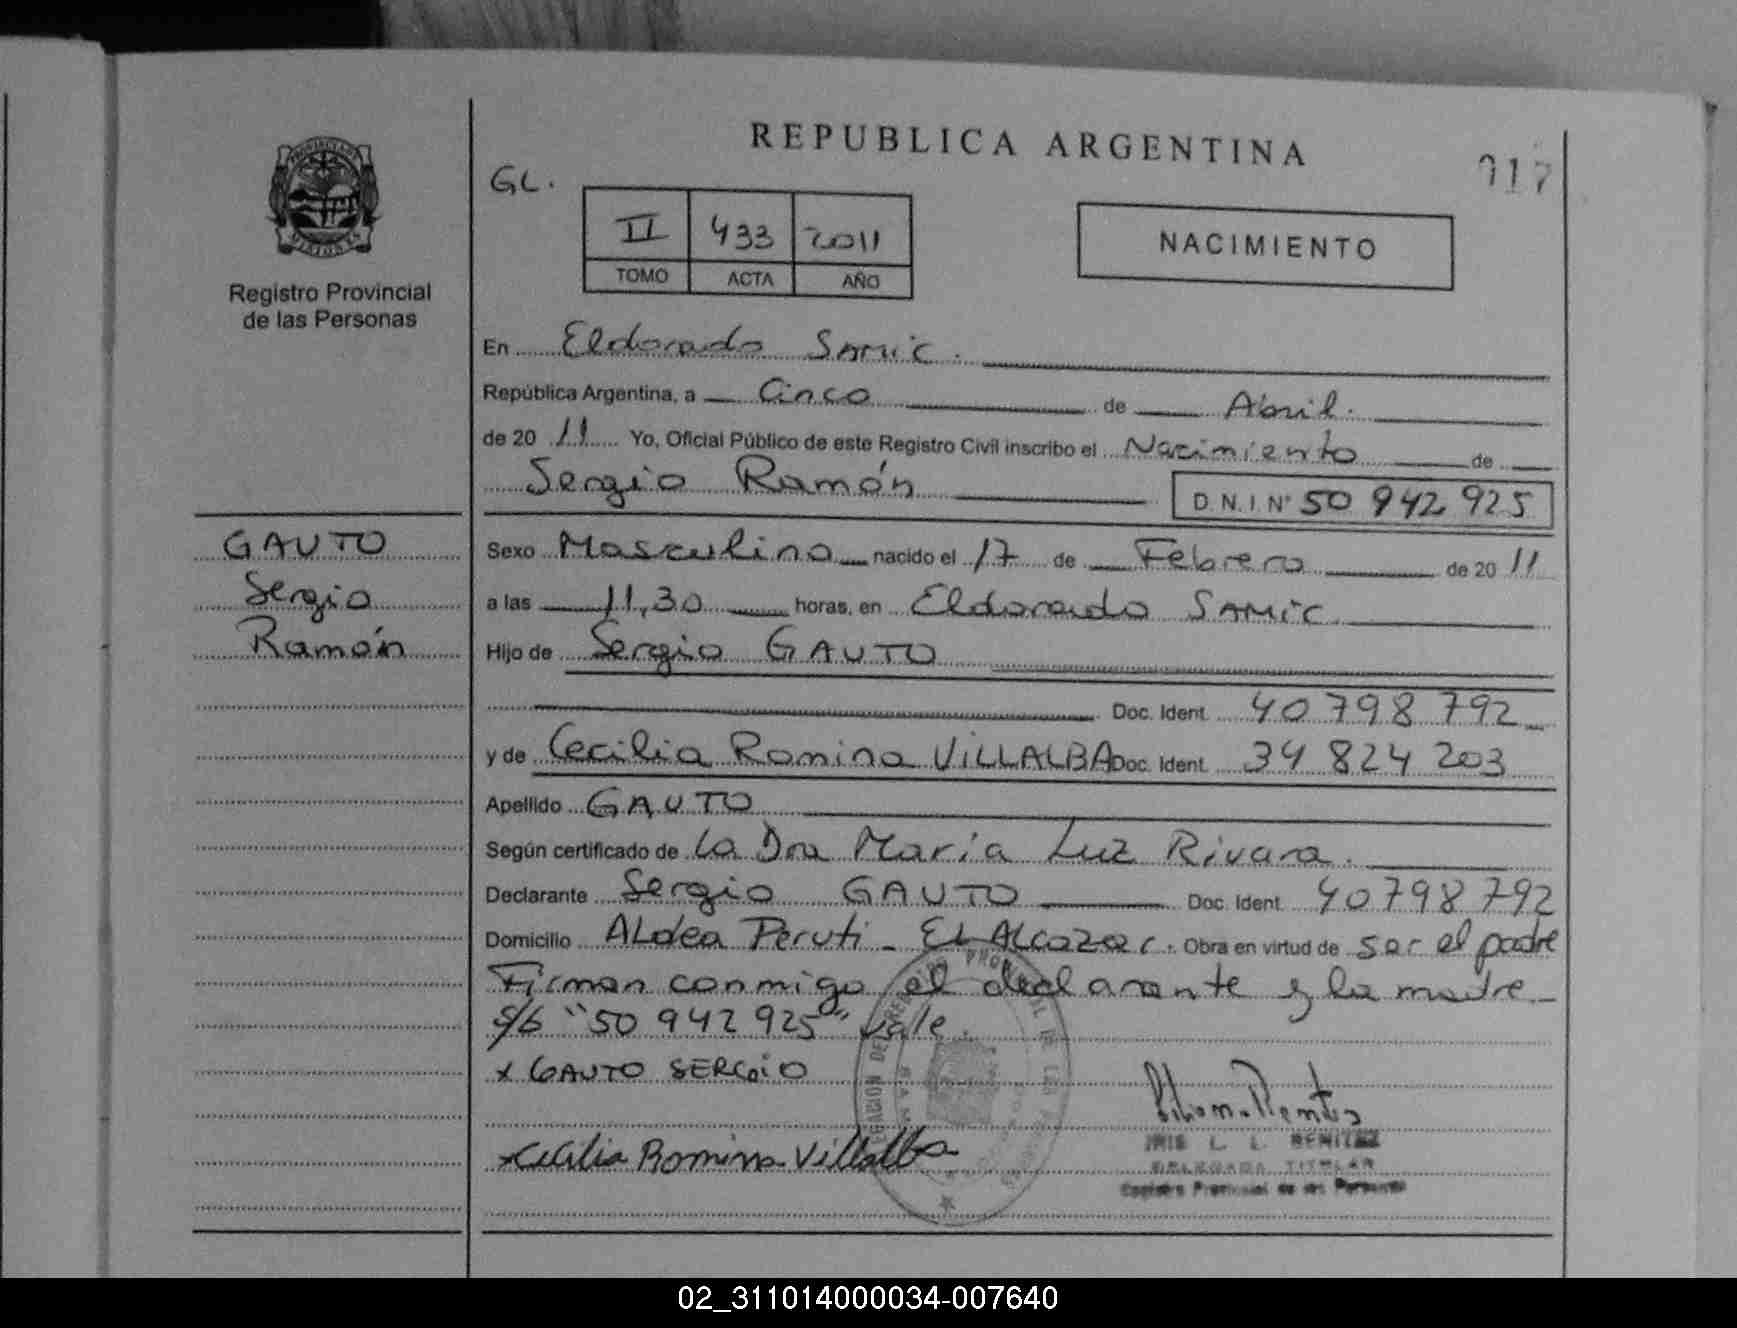 REPUBLICA ARGENTINA
917
GL.
II 433 2011
TOMO ACTA AÑO
NACIMIENTO
PROVINCIA DE
MISIONES
Registro Provincial
de las Personas
En Eldorado SAMIC.
República Argentina, a Cinco de Abril.
de 2011 Yo, Oficial Público de este Registro Civil inscribo el Nacimiento de
Sergio Ramón D.N.I. Nº 50 942 925
GAUTO
Sergio
Ramón
Sexo Masculino nacido el 17 de Febrero de 2011
a las 11,30 horas, en Eldorado SAMIC.
Hijo de Sergio GAUTO
Doc. Ident. 40 798 792
y de Cecilia Romina VILLALBA Doc. Ident. 34 824 203
Apellido GAUTO
Según certificado de la Dra María Luz Rivara.
Declarante Sergio GAUTO Doc. Ident. 40798 792
Domicilio ALdea Peruti - EL ALcazar. Obra en virtud de ser el padre
Firman conmigo el declarante y la madre
s/b "50 942 925" vale.
x GAUTO SERGIO
x Cecilia Romina Villalba
IRIS L. L. BENITEZ
DELEGADA TITULAR
Registro Provincial de las Personas
02_311014000034-007640